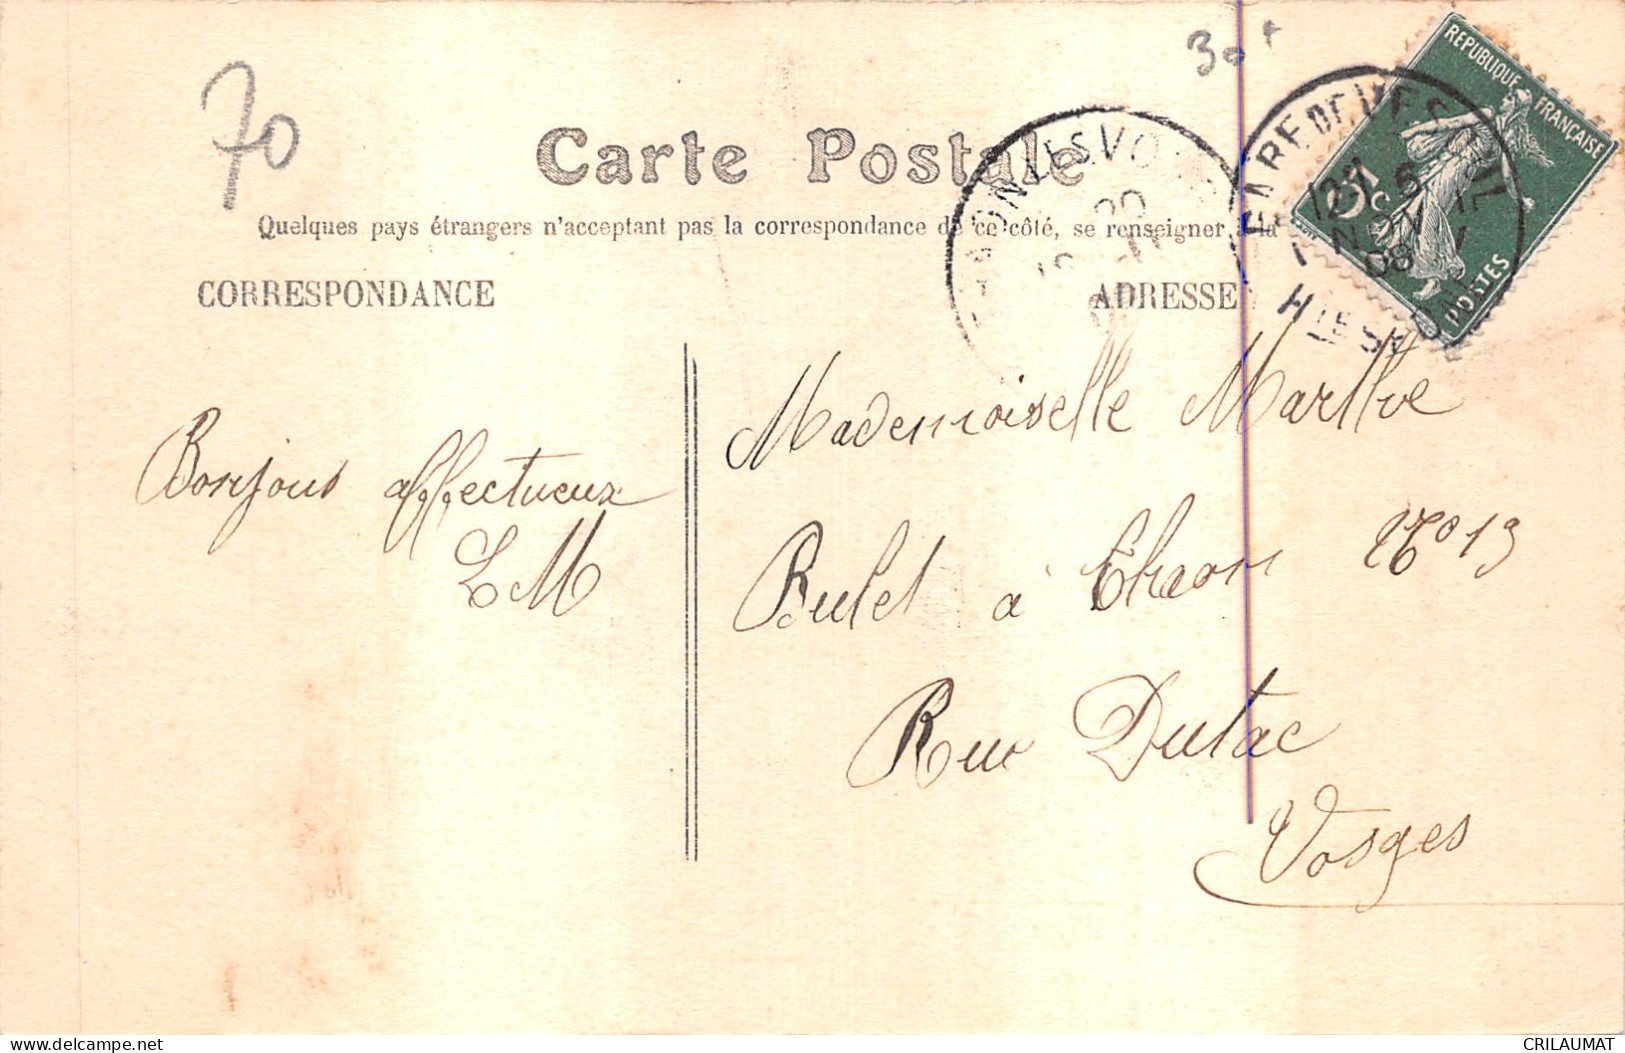 70
30 +
Carte Postale
Quelques pays étrangers n'acceptant pas la correspondance de ce côté, se renseigner à la
CORRESPONDANCE
ADRESSE
REPUBLIQUE FRANÇAISE
5c
POSTES
GARE DE VESOUL
Hte SAONE
12h 5
NOV
08
Bonjour affectueux
LM
Mademoiselle Marthe
Bulet à Thaon No 13
Rue Dutac
Vosges
CRILAUMAT